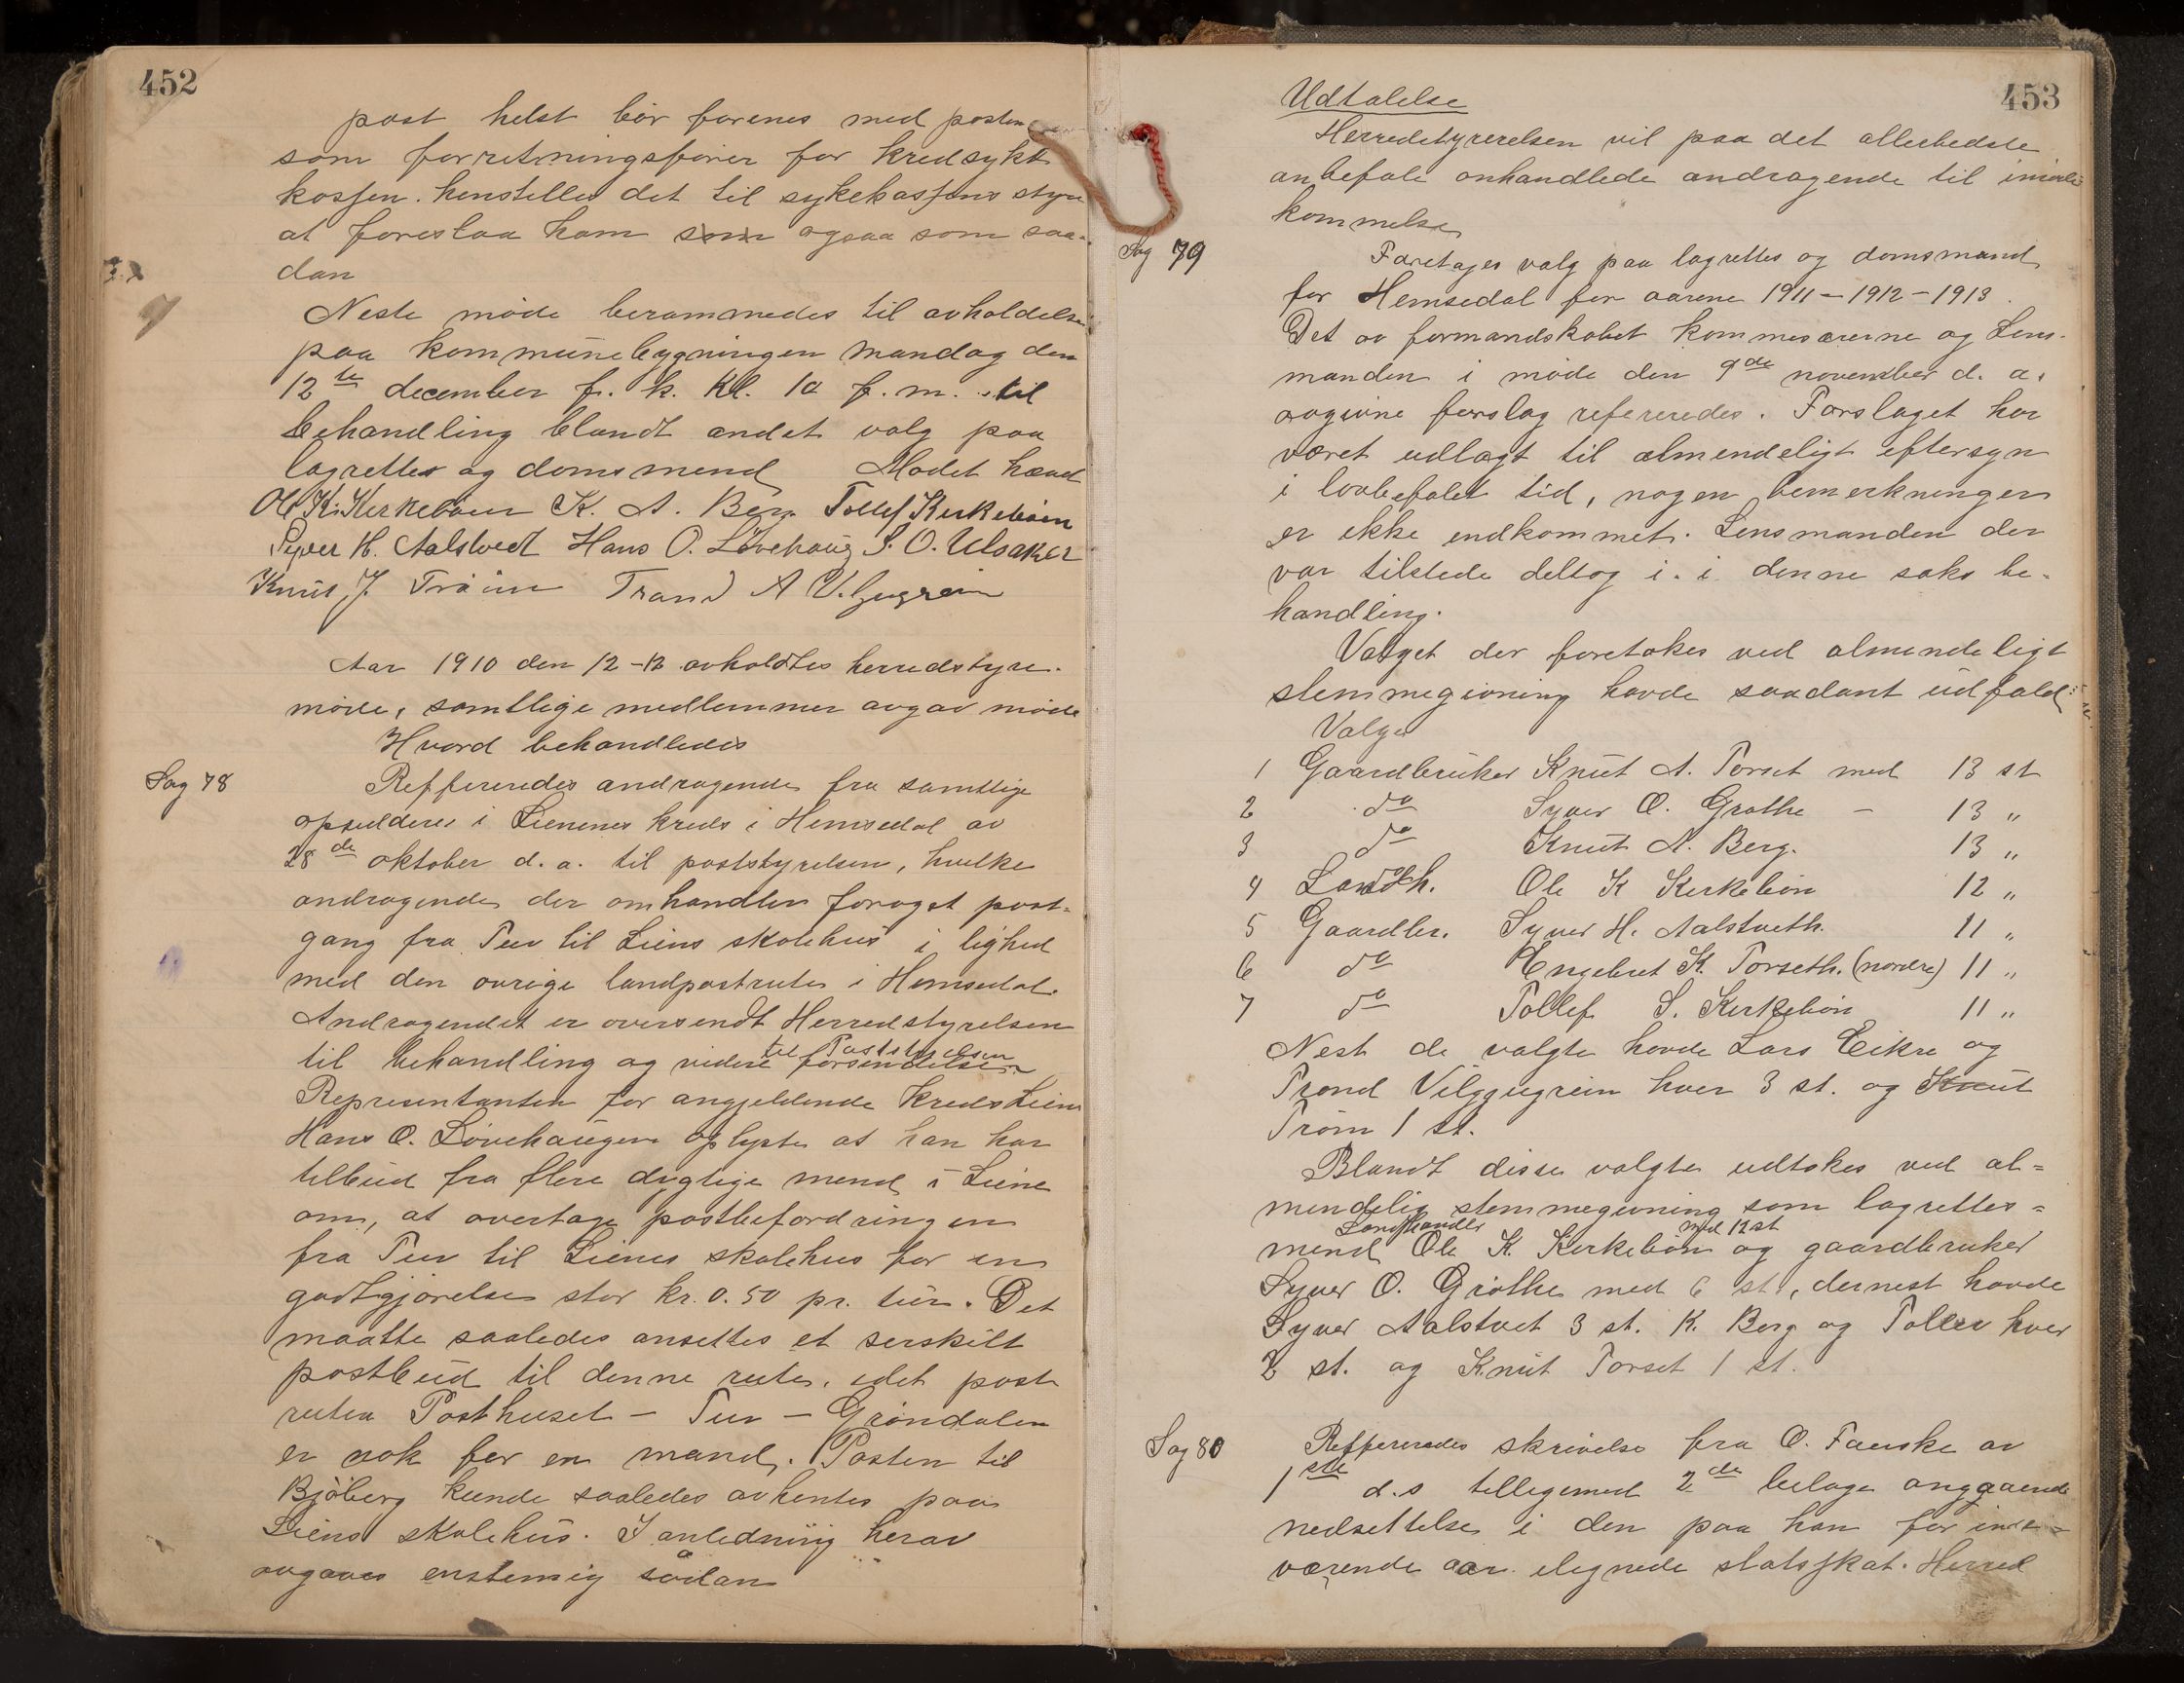 452
post helst bør forenes med posten
som forretningsfører for kredsyke
kassen. henstilles det til sykekassens styre
at foreslaa ham som ogsaa som saa-
dan
Neste møde berammedes til avholdelse
paa kommunebygningen mandag den
12te december f. k. Kl. 10 f. m. til
behandling blandt andet valg paa
lagrettes og domsmend Mødet hævd
Ole K. Kerkebøen K. A. Berg Tollef Kirkebøen
Syver H. Aalstvedt Hans O. Løvehaug S. O. Ulsaker
Knut J. Trøim Trond A
Aar 1910 den 12-12 avholdtes herredstyre-
møde, samtlige medlemmer avgav møde
Hvord behandledes
Sag 78
Reffereredes andragende fra samtlige
opsiddere i Lienes kreds i Hemsedal av
28de oktober d. a. til poststyrelsen, hvilke
andragende der omhandler forøget post-
gang fra Tuv til Liens skolehus i lighed
med den øvrige landpostruter i Hemsedal.
Andragendet er oversendt Herredstyrelsen
til behandling og videre forsendelse
til Poststyrelsen
Representanten for angjeldende Kreds Liene
Hans O. Løvehaugen oplyste at han har
tilbud fra flere dygtige mend i Liene
om, at overtage postbefordringen
fra Tuv til Lienes skolehus for en
godtgjørelse stor kr. 0.50 pr. tur. Det
maatte saaledes ansettes et serskilt
postbud til denne rute, idet post
ruten Posthuset - Tuv - Grøndalen
er nok for en mand. Posten til
Bjøberg kunde saaledes avhentes paa
Liens skolehus. I anledning herav
avgaves enstemig sådan
453
Udtalelse
Herredstyrerelsen vil paa det allerbedste
anbefale omhandlede andragende til imøde
kommelse
Sag 79
Foretages valg paa lagrettes og domsmænd
for Hemsedal for aarene 1911 - 1912 - 1913.
Det av formandskabet kommesærerne og Lens-
manden i møde den 9de november d. a.
avgivne forslag refereredes. Forslaget har
været udlagt til almendeligt eftersyn
i lovbefalet tid, nogen bemerkninger
er ikke indkommet. Lensmanden der
var tilstede deltog i. i denne saks be-
handling.
Valget der foretokes ved almindeligt
stemmegivning havde saadant udfald:
Valgt
1 Gaardbruker Knut A. Torset med 13 st
2 do Syver O. Grøthe - 13 "
3 do Knut N. Berg. 13 "
4 Landh. Ole K Kirkebøn 12 "
5 Gaardbr. Syver H. Aalstveth. 11 "
6 do Engebret K. Torseth. (nordre) 11 "
7 do Tollef S. Kirkebøn 11 "
Nest de valgte havde Lars Eikre og
Trond hver 3 st. og Knut
Trøm 1 st.
Blandt disse valgte udtokes ved al-
mendelig stemmegivning som lagrettes-
Landhandler med 12 st
mend Ole K. Kirkebøn og gaardbruker
Syver O. Grøthe med 6 st, dernest havde
Syver Aalstvet 3 st. K. Berg og Tollev hver
2 st. og Knut Torset 1 st.
Sag 80
Reffereredes skrivelse fra O. Fauske av
1ste d.s tillegemed 2de bilage angaaende
nedsettelse i den paa han for inde-
værende aar ilegnede statsskat. Herred